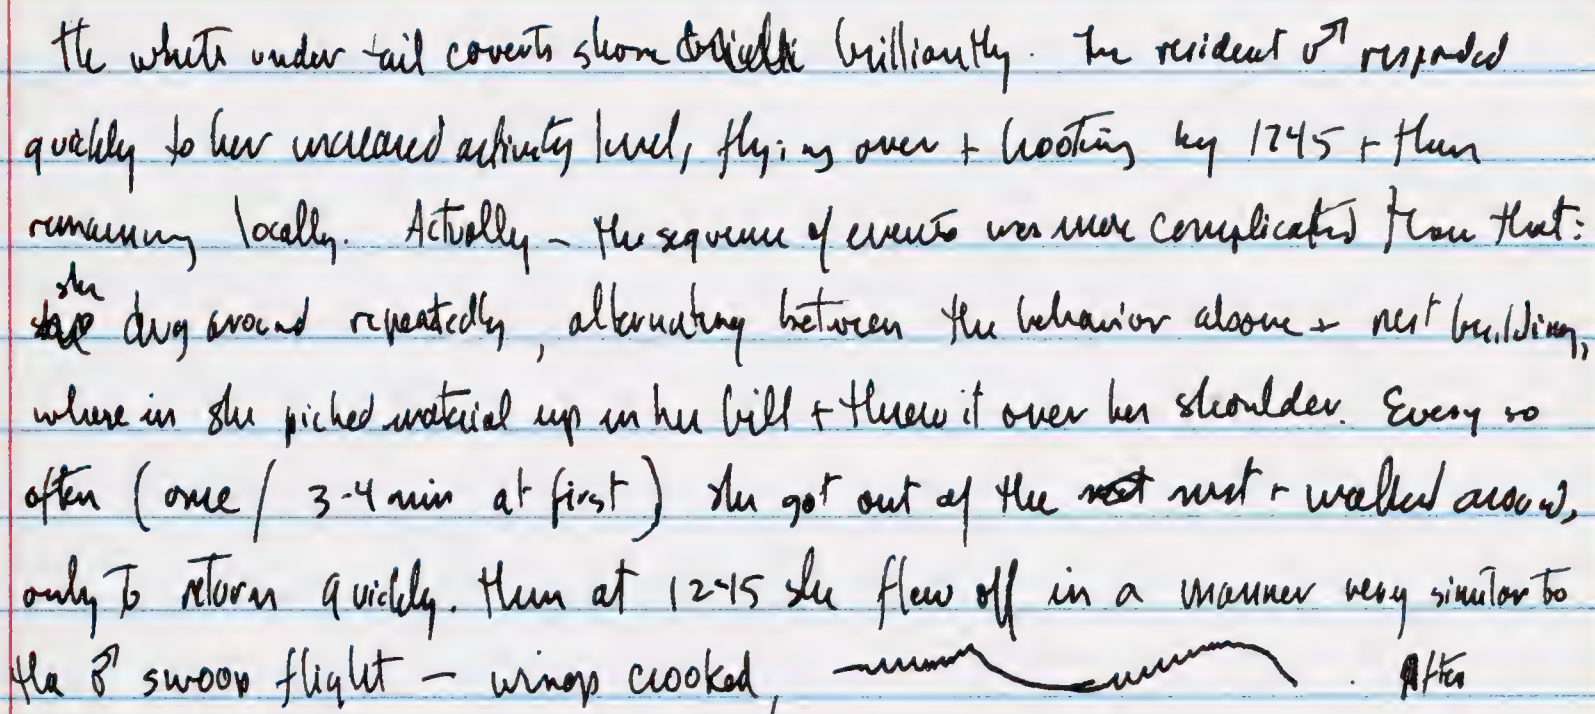 The white under tail coverts shone brilliantly. The resident ♂ responded
quickly to her increased activity level, flying over + hooting by 1245 + then
remaining locally. Actually - the sequence of events was more complicated than that:
she dug around repeatedly, alternating between the behavior above + nest building,
where in she picked material up in her bill + threw it over her shoulder. Every so
often (once / 3-4 min at first) she got out of the nest + walked around,
only to return quickly. Then at 1245 she flew off in a manner very similar to
the ♂ swoop flight - wings crooked, . After